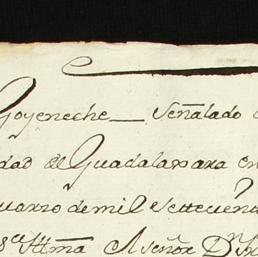 Goyeneche_ Señalado
dad de Guadalaxara en
uarzo de mil e settecien
Sᵃ Illmâ A señor Dⁿ